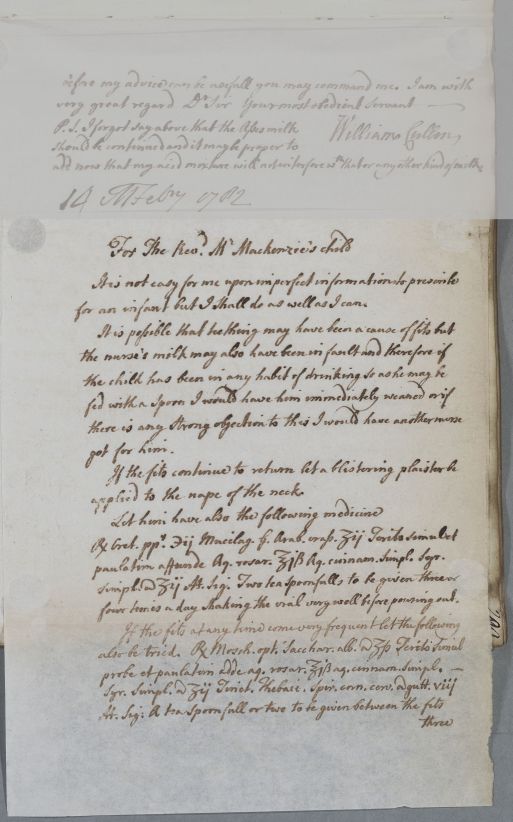 before my advice can be usefull you may command me. I am with
very great regard Dr Sir Your most obedient servant
P.S. I forgot say above that the Asses milk William Cullen
should be continued and it may be proper to
add now that my acid mixture will not interfere wth that or any other kind of milk.
14 Febry 1782
For The Revd. Mr Mackenzie's child
It is not easy for me upon imperfect information to prescribe
for an infant but I shall do as well as I can.
It is possible that teething may have been a cause of fits but
the nurse's milk may also have been in fault and therefore if
the child has been in any habit of drinking so as he may be
fed with a spoon I would have him immediately weaned or if
there is any strong objection to this I would have another nurse
got for him.
If the fits continue to return let a blistering plaister be
applied to the nape of the neck.
Let him have also the following medicine
℞ Cret. ppt. ℈ij Mucilag. g. Arab. crass. ʒij Terito simul et
paulatim affunde Aq. rosar. ℥jß Aq. cinnam. simpl. Syr.
simpl. a ʒij M. Sig. Two tea spoonfulls to be given three or
four times a day shaking the vial very well before pouring out.
If the fits at any time come very frequent let the following
also be tried. ℞ Mosch. opt. Sacchar. alb. a ʒß Terito simul
probe et paulatim adde aq. rosar. ℥jß aq. cinnam. simpl.
Syr. simpl. a ʒij Tinct. Thebaic. Spir. corn. cerv. a gutt. viij
M. Sig: A tea spoonfull or two to be given between the fits
three